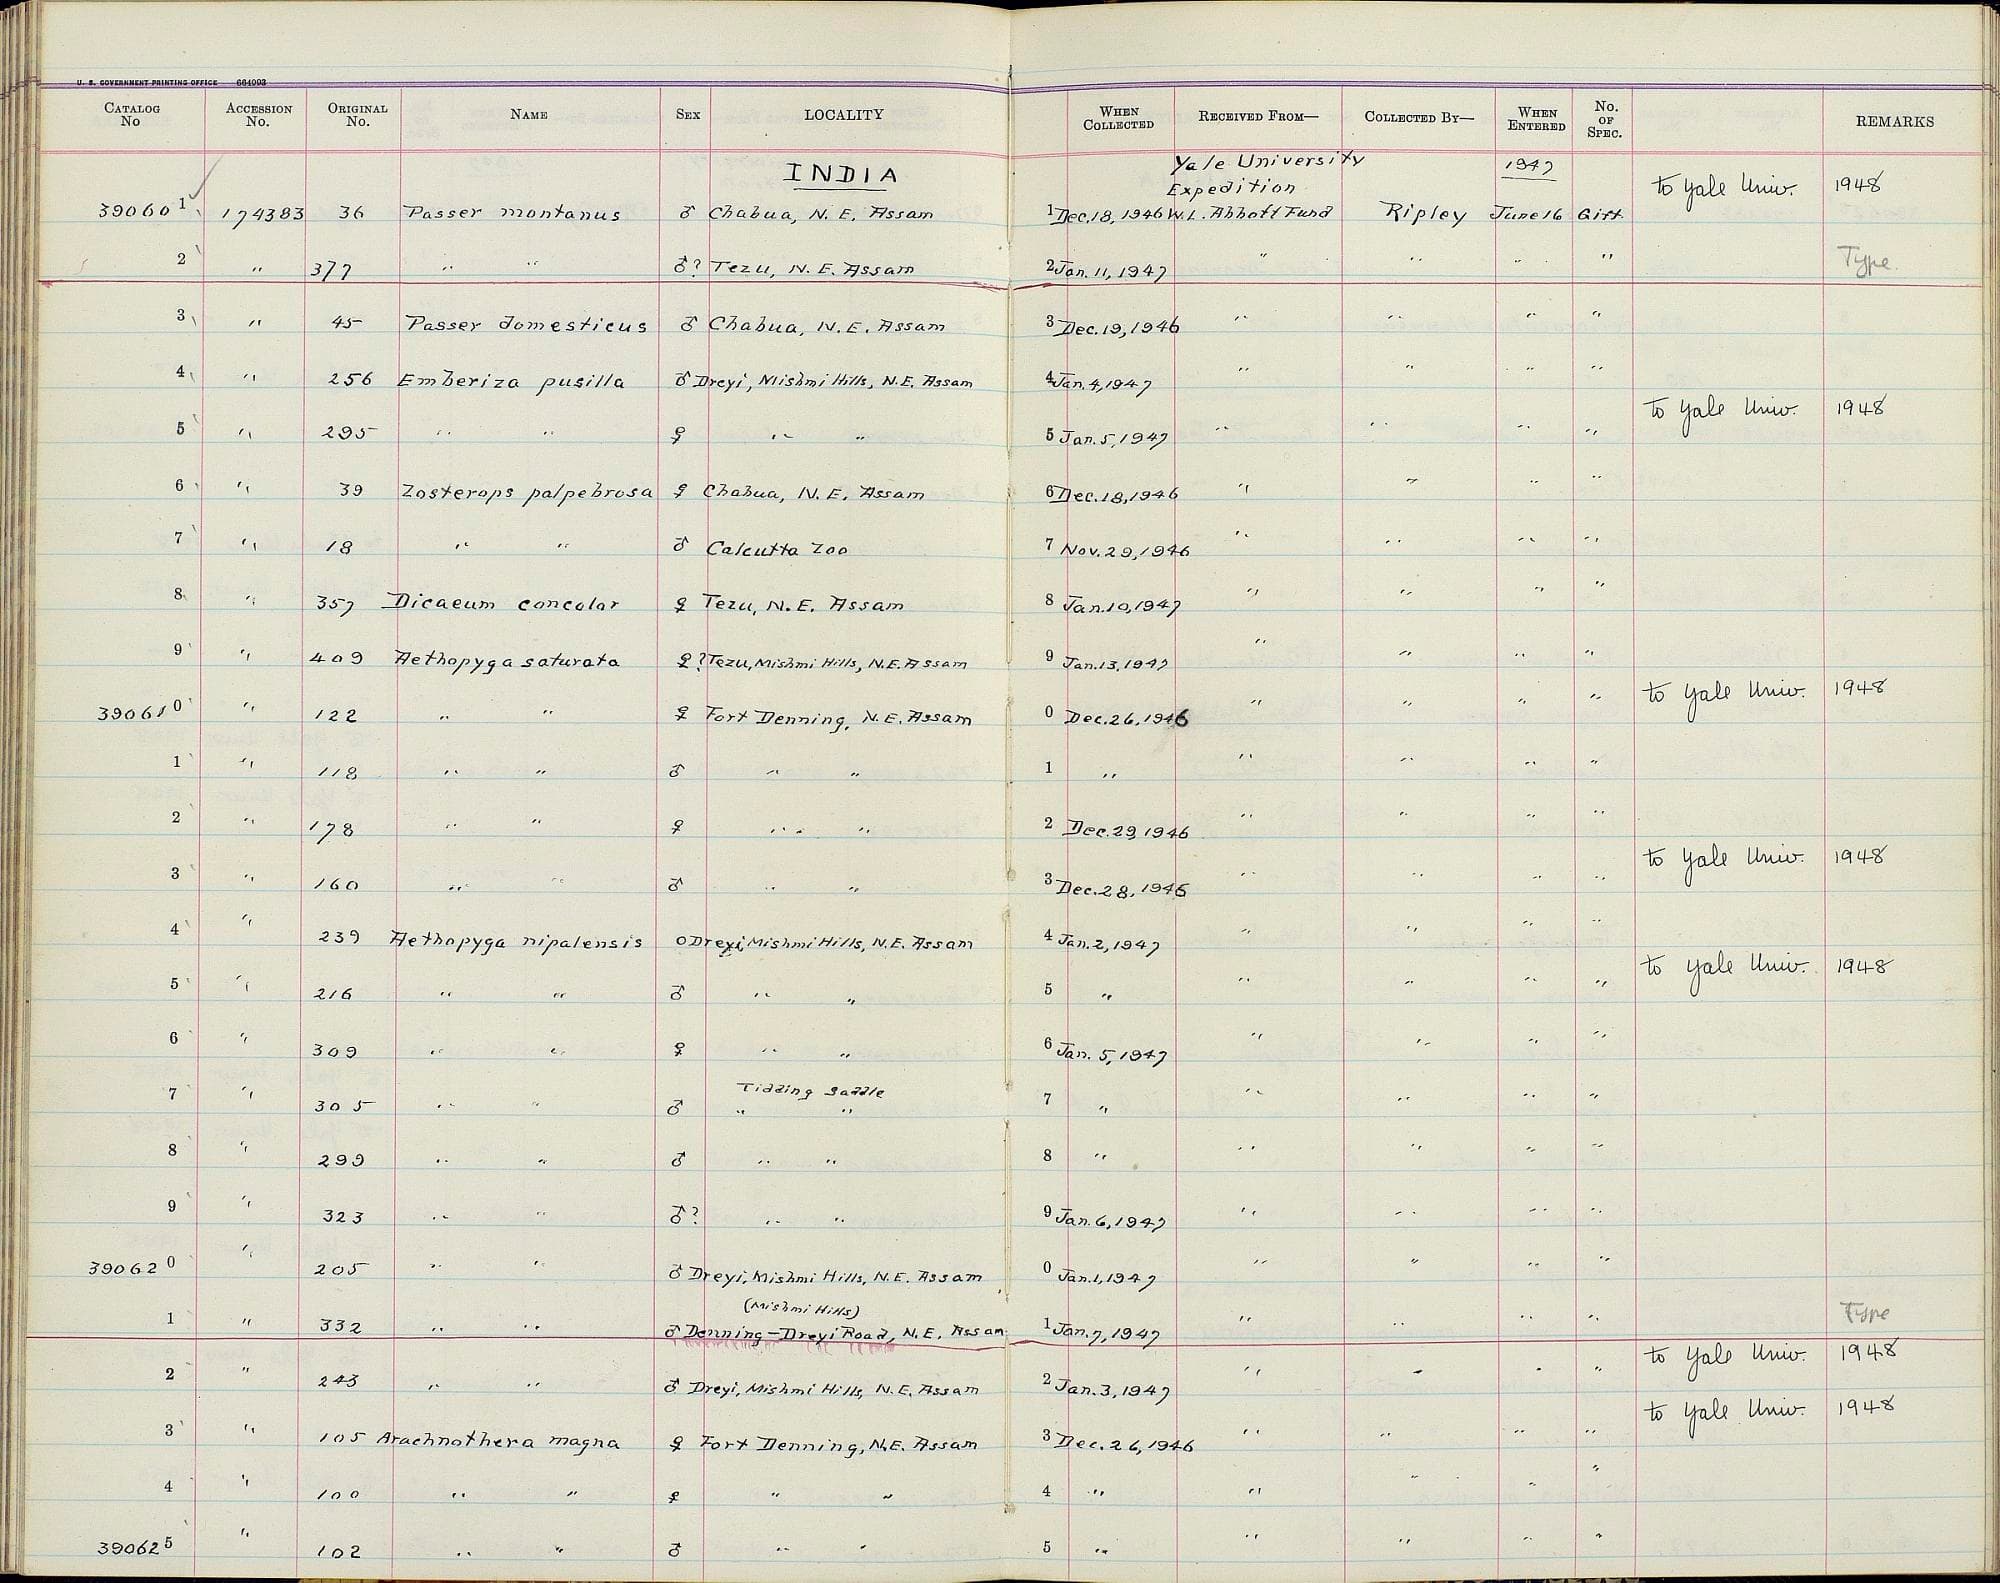 U. S. GOVERNMENT PRINTING OFFICE 664093
CATALOG No ACCESSION No. ORIGINAL No. NAME SEX LOCALITY WHEN COLLECTED RECEIVED FROM— COLLECTED BY— WHEN ENTERED No. OF SPEC. REMARKS
INDIA Yale University Expedition 1947
390601 174383 36 Passer montanus ♂ Chabua, N. E. Assam 1 Dec. 18, 1946 W. L. Abbott Fund Ripley June 16 Gift to Yale Univ. 1948
2 " 377 " " ♂? Tezu, N. E. Assam 2 Jan. 11, 1947 " " " " Type
3 " 45 Passer domesticus ♂ Chabua, N. E. Assam 3 Dec. 19, 1946 " " " "
4 " 256 Emberiza pusilla ♂ Dreyi, Mishmi Hills, N. E. Assam 4 Jan. 4, 1947 " " " "
5 " 295 " " ♀ " " 5 Jan. 5, 1947 " " " " to Yale Univ. 1948
6 " 39 Zosterops palpebrosa ♀ Chabua, N. E. Assam 6 Dec. 18, 1946 " " " "
7 " 18 " " ♂ Calcutta Zoo 7 Nov. 29, 1946 " " " "
8 " 357 Dicaeum concolor ♀ Tezu, N. E. Assam 8 Jan. 10, 1947 " " " "
9 " 409 Aethopyga saturata ♀? Tezu, Mishmi Hills, N. E. Assam 9 Jan. 13, 1947 " " " "
390610 " 122 " " ♀ Fort Denning, N. E. Assam 0 Dec. 26, 1946 " " " " to Yale Univ. 1948
1 " 118 " " ♂ " " 1 " " " " "
2 " 178 " " ♀ " " 2 Dec. 29, 1946 " " " "
3 " 160 " " ♂ " " 3 Dec. 28, 1946 " " " " to Yale Univ. 1948
4 " 239 Aethopyga nipalensis o Dreyi, Mishmi Hills, N. E. Assam 4 Jan. 2, 1947 " " " "
5 " 216 " " ♂ " " 5 " " " " " to Yale Univ. 1948
6 " 309 " " ♀ " " 6 Jan. 5, 1947 " " " "
Tidding Saddle
7 " 305 " " ♂ " " 7 " " " " "
8 " 299 " " ♂ " " 8 " " " " "
9 " 323 " " ♂? " " 9 Jan. 6, 1947 " " " "
390620 " 205 " " ♂ Dreyi, Mishmi Hills, N. E. Assam 0 Jan. 1, 1947 " " " "
(Mishmi Hills)
1 " 332 " " ♂ Denning—Dreyi Road, N. E. Assam 1 Jan. 7, 1947 " " " " Type
2 " 243 " " ♂ Dreyi, Mishmi Hills, N. E. Assam 2 Jan. 3, 1947 " " " " to Yale Univ. 1948
3 " 105 Arachnothera magna ♀ Fort Denning, N. E. Assam 3 Dec. 26, 1946 " " " " to Yale Univ. 1948
4 " 100 " " ♀ " " 4 " " " " "
390625 " 102 " " ♂ " " 5 " " " " "